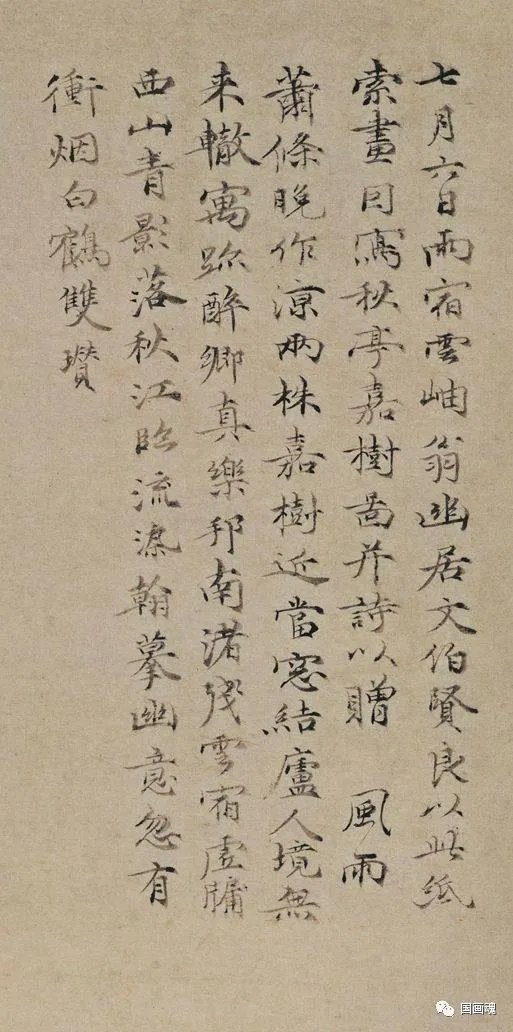 七月六日雨宿雲岫翁幽居文伯賢良以此紙
索畫因寫秋亭嘉樹圖并詩以贈　風雨
蕭條晚作涼兩株嘉樹近當窓結廬人境無
来轍寓跡醉鄉真樂邦南渚殘雲宿虛牖
西山青影落秋江臨流染翰摹幽意忽有
衝烟白鶴雙瓚
国画魂